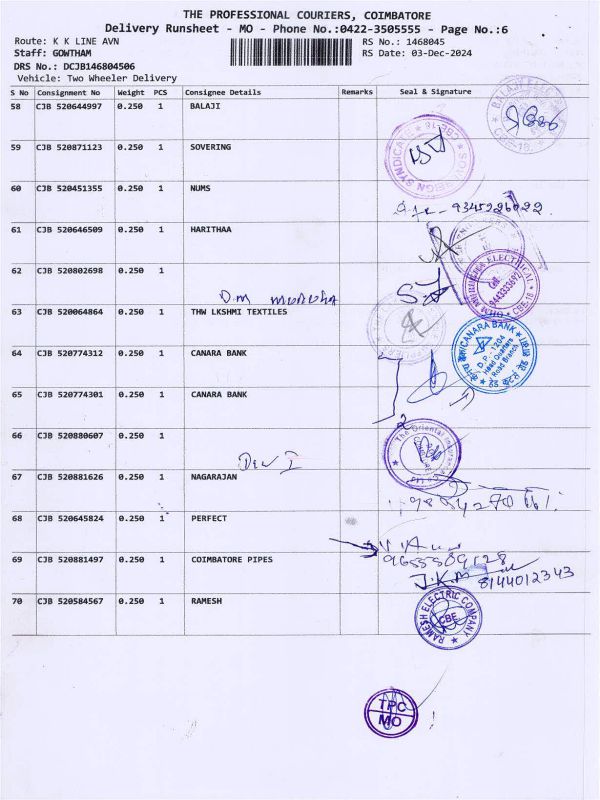 THE PROFESSIONAL COURIERS, COIMBATORE
Delivery Runsheet - MO - Phone No.:0422-3505555 - Page No.:6
Route: K K LINE AVN
RS No.: 1468045
Staff: GOWTHAM
RS Date: 03-Dec-2024
DRS No.: DCJB146804506
Vehicle: Two Wheeler Delivery
S No Consignment No Weight PCS Consignee Details Remarks Seal & Signature
58 CJB 520644997 0.250 1 BALAJI
59 CJB 520871123 0.250 1 SOVERING
60 CJB 520451355 0.250 1 NUMS
61 CJB 520646509 0.250 1 HARITHAA
62 CJB 520802698 0.250 1
D.M MURUHA
63 CJB 520064864 0.250 1 THW LKSHMI TEXTILES
64 CJB 520774312 0.250 1 CANARA BANK
CANARA BANK
D.P.-1204
Head Quarters
Road Branch
65 CJB 520774301 0.250 1 CANARA BANK
2
66 CJB 520880607 0.250 1
The Oriental Insurance
67 CJB 520881626 0.250 1 NAGARAJAN
68 CJB 520645824 0.250 1 PERFECT
69 CJB 520881497 0.250 1 COIMBATORE PIPES
8144012343
70 CJB 520584567 0.250 1 RAMESH
RAMESH ELECTRIC COMPANY
CBE
TPC
MO